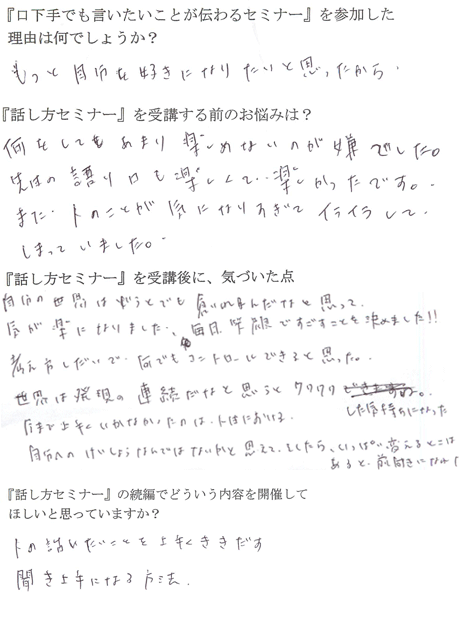 『口下手でも言いたいことが伝わるセミナー』を参加した
理由は何でしょうか？
もっと自分を好きになりたいと思ったから.
『話し方セミナー』を受講する前のお悩みは？
何をしてもあまり楽しめないのが嫌でした。
先生の語り口も楽しくて..楽しかったです。.
また、人のことが気になりすぎてイライラして.
しまっていました。.
『話し方セミナー』を受講後に、気づいた点
自分の世界はどうとでも 思って.
気が楽になりました、毎日笑顔ですごすことを決めました!!
考え方しだいで.何でもコントロールできると思った。.
世界は発見の連続だなと思うとワクワク
した気持ちになった
今まで上手くいかなかったのは.
自分への なんではないかと思えて.そしたら、いっぱい変えるとこは
あると.前向きになれ
『話し方セミナー』の続編でどういう内容を開催して
ほしいと思っていますか？
人の話したいことを上手くききだす
聞き上手になる方法.